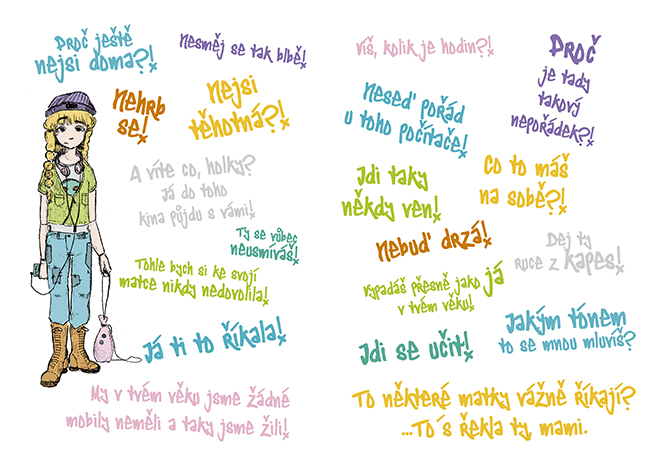 Proč ještě
nejsi doma?!
Nesměj se tak blbě!
Nehrb
se!
Nejsi
těhotná?!
A víte co, holky?
Já do toho
kina půjdu s vámi!
Ty se vůbec
neusmíváš!
Tohle bych si ke svojí
matce nikdy nedovolila!
Já ti to říkala!
My v tvém věku jsme žádné
mobily neměli a taky jsme žili!
Víš, kolik je hodin?!
Proč
je tady
takový
nepořádek?!
Neseď pořád
u toho počítače!
Co to máš
na sobě?!
Jdi taky
někdy ven!
Nebuď drzá!
Dej ty
ruce z kapes!
Vypadáš přesně jako já
v tvém věku!
Jakým tónem
to se mnou mluvíš?
Jdi se učit!
To některé matky vážně říkají?
...To´s řekla ty, mami.